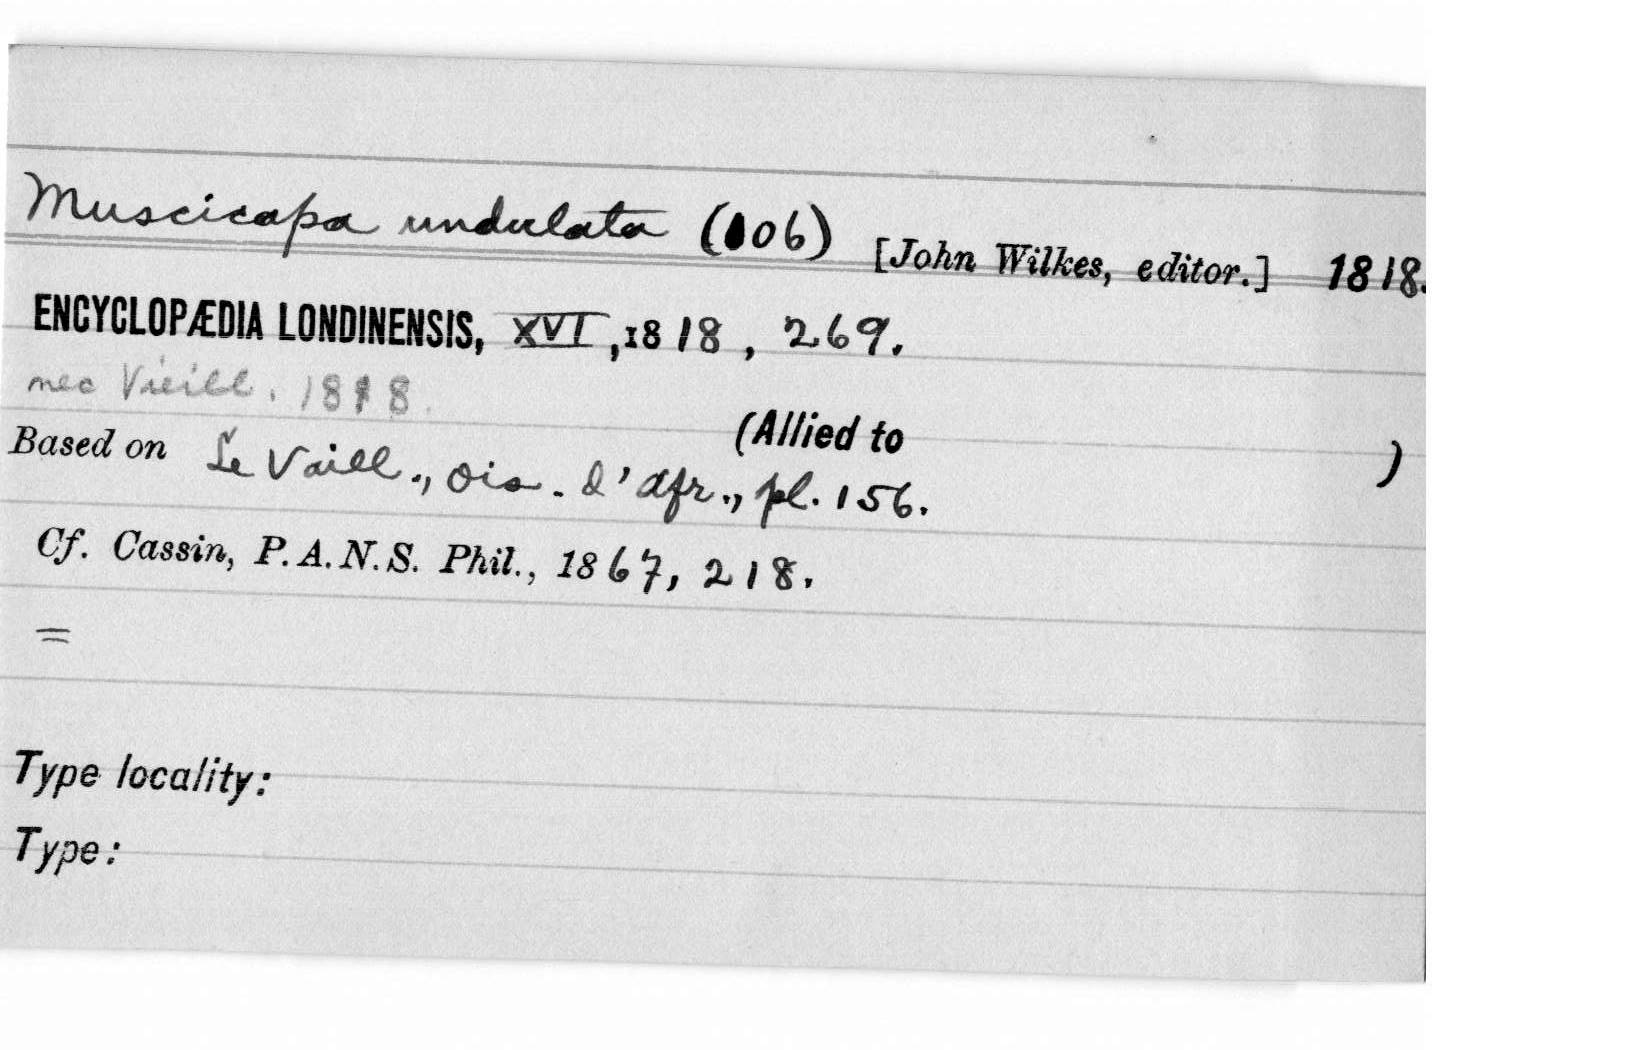 Muscicapa undulata (106) [John Wilkes, editor.] 1818.
ENCYCLOPÆDIA LONDINENSIS, XVI, 1818, 269.
nec Vieill. 1818.
(Allied to )
Based on Le Vaill., Ois. d'Afr., pl. 156.
Cf. Cassin, P.A.N.S. Phil., 1867, 218.
=
Type locality:
Type: